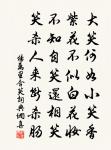 大笑何如小笑香
紫花不似白花妝
不知自笑還相笑
笑殺人來斷殺腸
楊萬里含笑詞典網